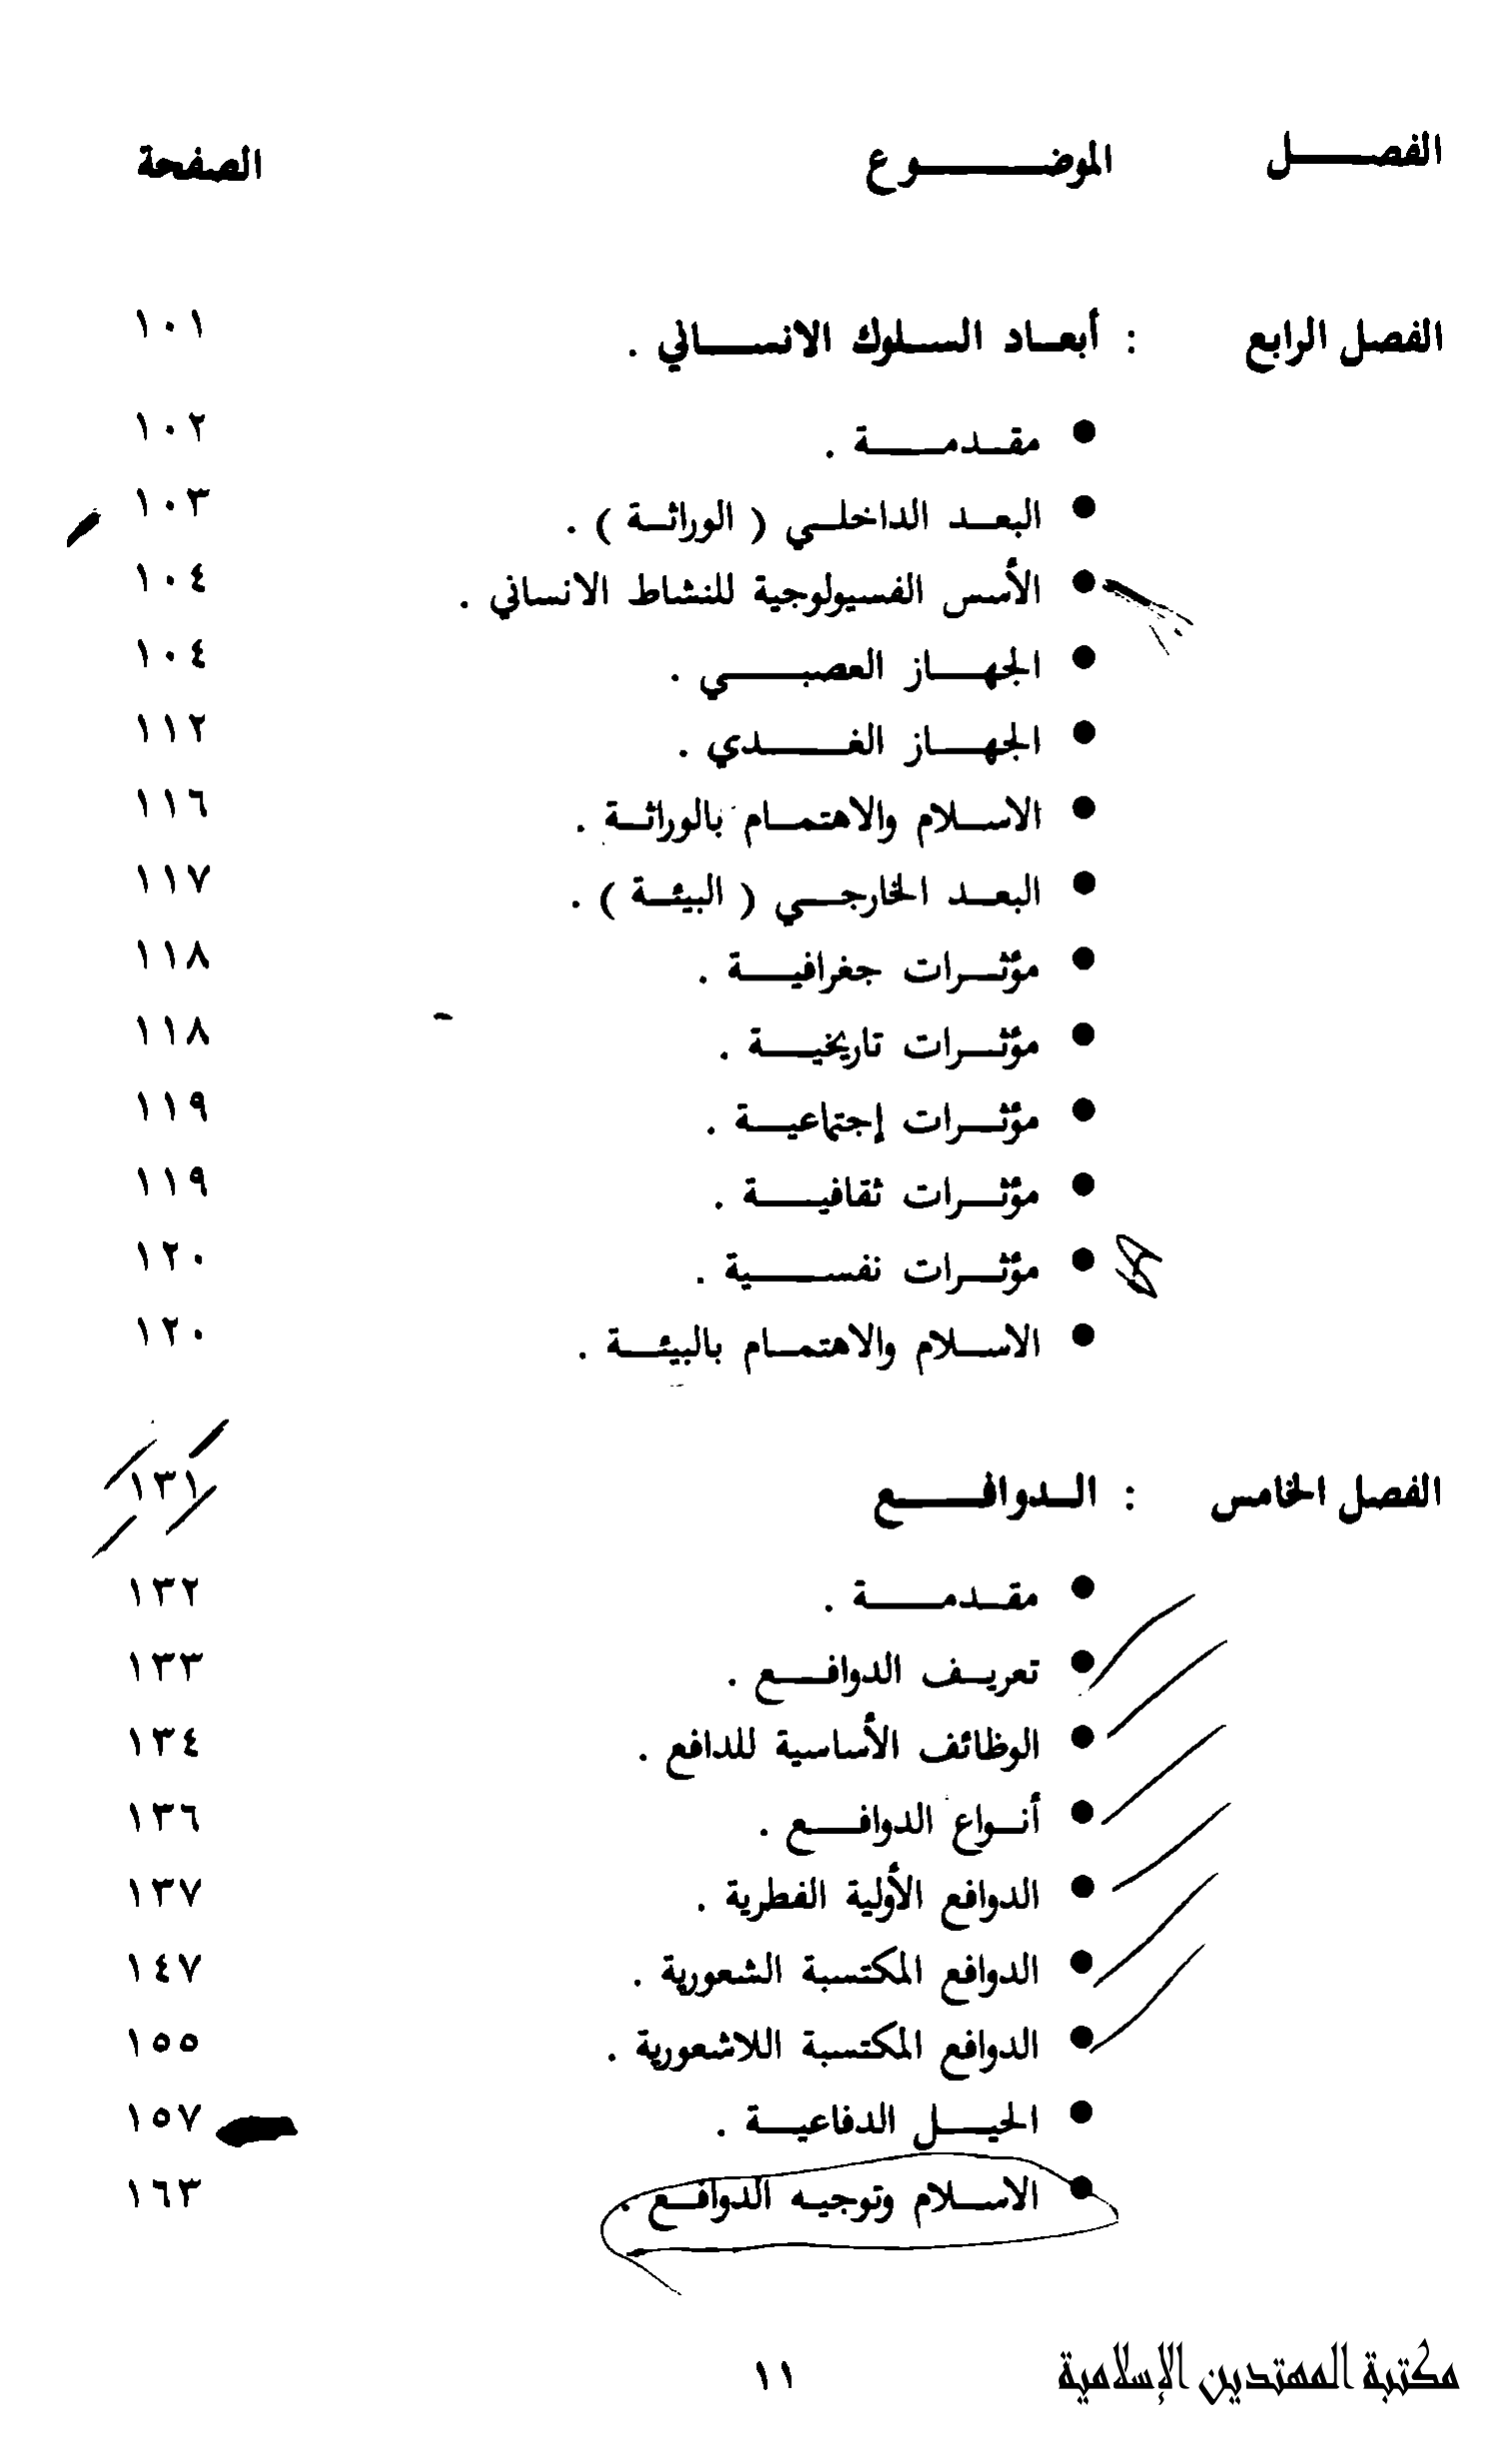 الفصل الموضوع الصفحة
الفصل الرابع : أبعاد السلوك الانساني . ١٠١
● مقدمة . ١٠٢
● البعد الداخلي ( الوراثة ) . ١٠٣
● الأسس الفسيولوجية للنشاط الانساني . ١٠٤
● الجهاز العصبي . ١٠٤
● الجهاز الغدي . ١١٢
● الاسلام والاهتمام بالوراثة . ١١٦
● البعد الخارجي ( البيئة ) . ١١٧
● مؤثرات جغرافية . ١١٨
● مؤثرات تاريخية . ١١٨
● مؤثرات إجتماعية . ١١٩
● مؤثرات ثقافية . ١١٩
● مؤثرات نفسية . ١٢٠
● الاسلام والاهتمام بالبيئة . ١٢٠
الفصل الخامس : الدوافع ١٣١
● مقدمة . ١٣٢
● تعريف الدوافع . ١٣٣
● الوظائف الأساسية للدافع . ١٣٤
● أنواع الدوافع . ١٣٦
● الدوافع الأولية الفطرية . ١٣٧
● الدوافع المكتسبة الشعورية . ١٤٧
● الدوافع المكتسبة اللاشعورية . ١٥٥
● الحيل الدفاعية . ١٥٧
● الاسلام وتوجيه الدوافع . ١٦٣
مكتبة المهتدين الإسلامية ١١